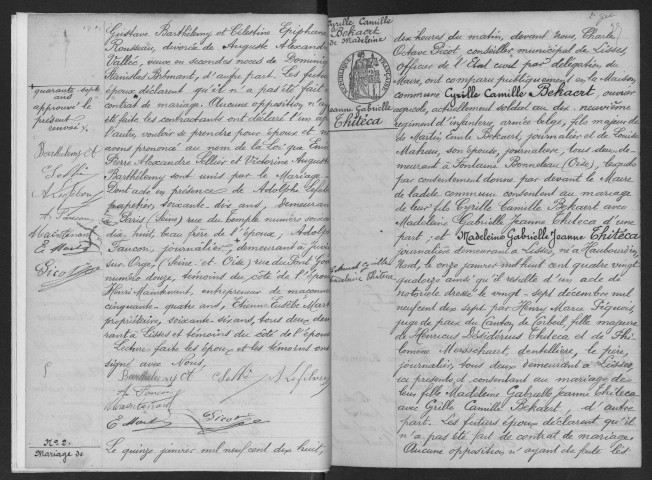 Gustave Barthélemy et Célestine Epiphanie
Rousseau, divorcée de Auguste Alexandre
Vallée, veuve en secondes noces de Dominique
Stanislas d'autre part. Les futurs
époux déclarent qu'il n'a pas été fait de
contrat de mariage. Aucune opposition n'ayant
été faite les contractants ont déclaré l'un après
l'autre vouloir se prendre pour époux et nous
avons prononcé au nom de la Loi que
Pierre Alexandre et Victorine Augustine
Barthélemy sont unis par le Mariage.
Dont acte en présence de Adolphe
papetier, soixante dix ans, demeurant
à Paris (Seine) rue du Temple numéro soixante
dix huit, beau frère de l'époux, Adolphe
Faucon, journalier demeurant à
sur Orge, (Seine et Oise) rue du
numéro douze, témoins du côté de l'époux
Henri Maintenant, entrepreneur de maçonnerie
cinquante quatre ans, Etienne
propriétaire, soixante six ans, tous deux demeu-
rant à Lisses et témoins du côté de l'épouse
Lecture faite les époux et les témoins ont
signé avec Nous.
Barthélemy A
A Lefebvre
A Faucon
Maintenant
E
Picot
quarante sept
ans
approuvé le
présent
renvoi
Barthélemy A
A Lefebvre
A Faucon
Maintenant
E
Picot
No 2.
Mariage de
Le quinze janvier mil neuf cent huit,
Cyrille Camille
Bekaert
& Madeleine
Jeanne Gabrielle
Thiteca
dix heures du matin, devant nous, Charles
Octave Picot conseiller municipal de Lisses,
Officier de l'Etat civil par délégation du
Maire, ont comparu publiquement en la Maison
commune Cyrille Camille Bekaert, ouvrier
agricole, actuellement soldat au deux neuvième
régiment d'infanterie, armée belge, fils majeur de
de Martin Emile Bekaert, journalier et de Louise
Mahieu, son épouse, journalière, tous deux de-
meurant à Fontaine Bonneleau (Oise), lesquels
par consentement donné par devant le Maire
de ladite commune consentent au mariage
de leur fils Cyrille Camille Bekaert avec
Madeleine Gabrielle Jeanne Thiteca d'une
part; et Madeleine Gabrielle Jeanne Thitéca
journalière demeurant à Lisses, née à Haubourdin,
Nord, le onze janvier mil huit cent quatre vingt
quatorze ainsi qu'il résulte d'un acte de
notoriété dressé le vingt-sept décembre mil
neuf cent sept par Henry Marie
juge de paix du Canton de Corbeil, fille majeure
de Henricus Desiderius Thiteca et de Phi-
lomène Mersschaert, dentellière, le père,
journalier, tous deux demeurant à Lisses,
ici présents et consentant au mariage de
leur fille Madeleine Gabrielle Jeanne Thiteca
avec Cyrille Camille Bekaert d'autre
part. Les futurs époux déclarent qu'il
n'a pas été fait de contrat de mariage.
Aucune opposition n'ayant été faite les